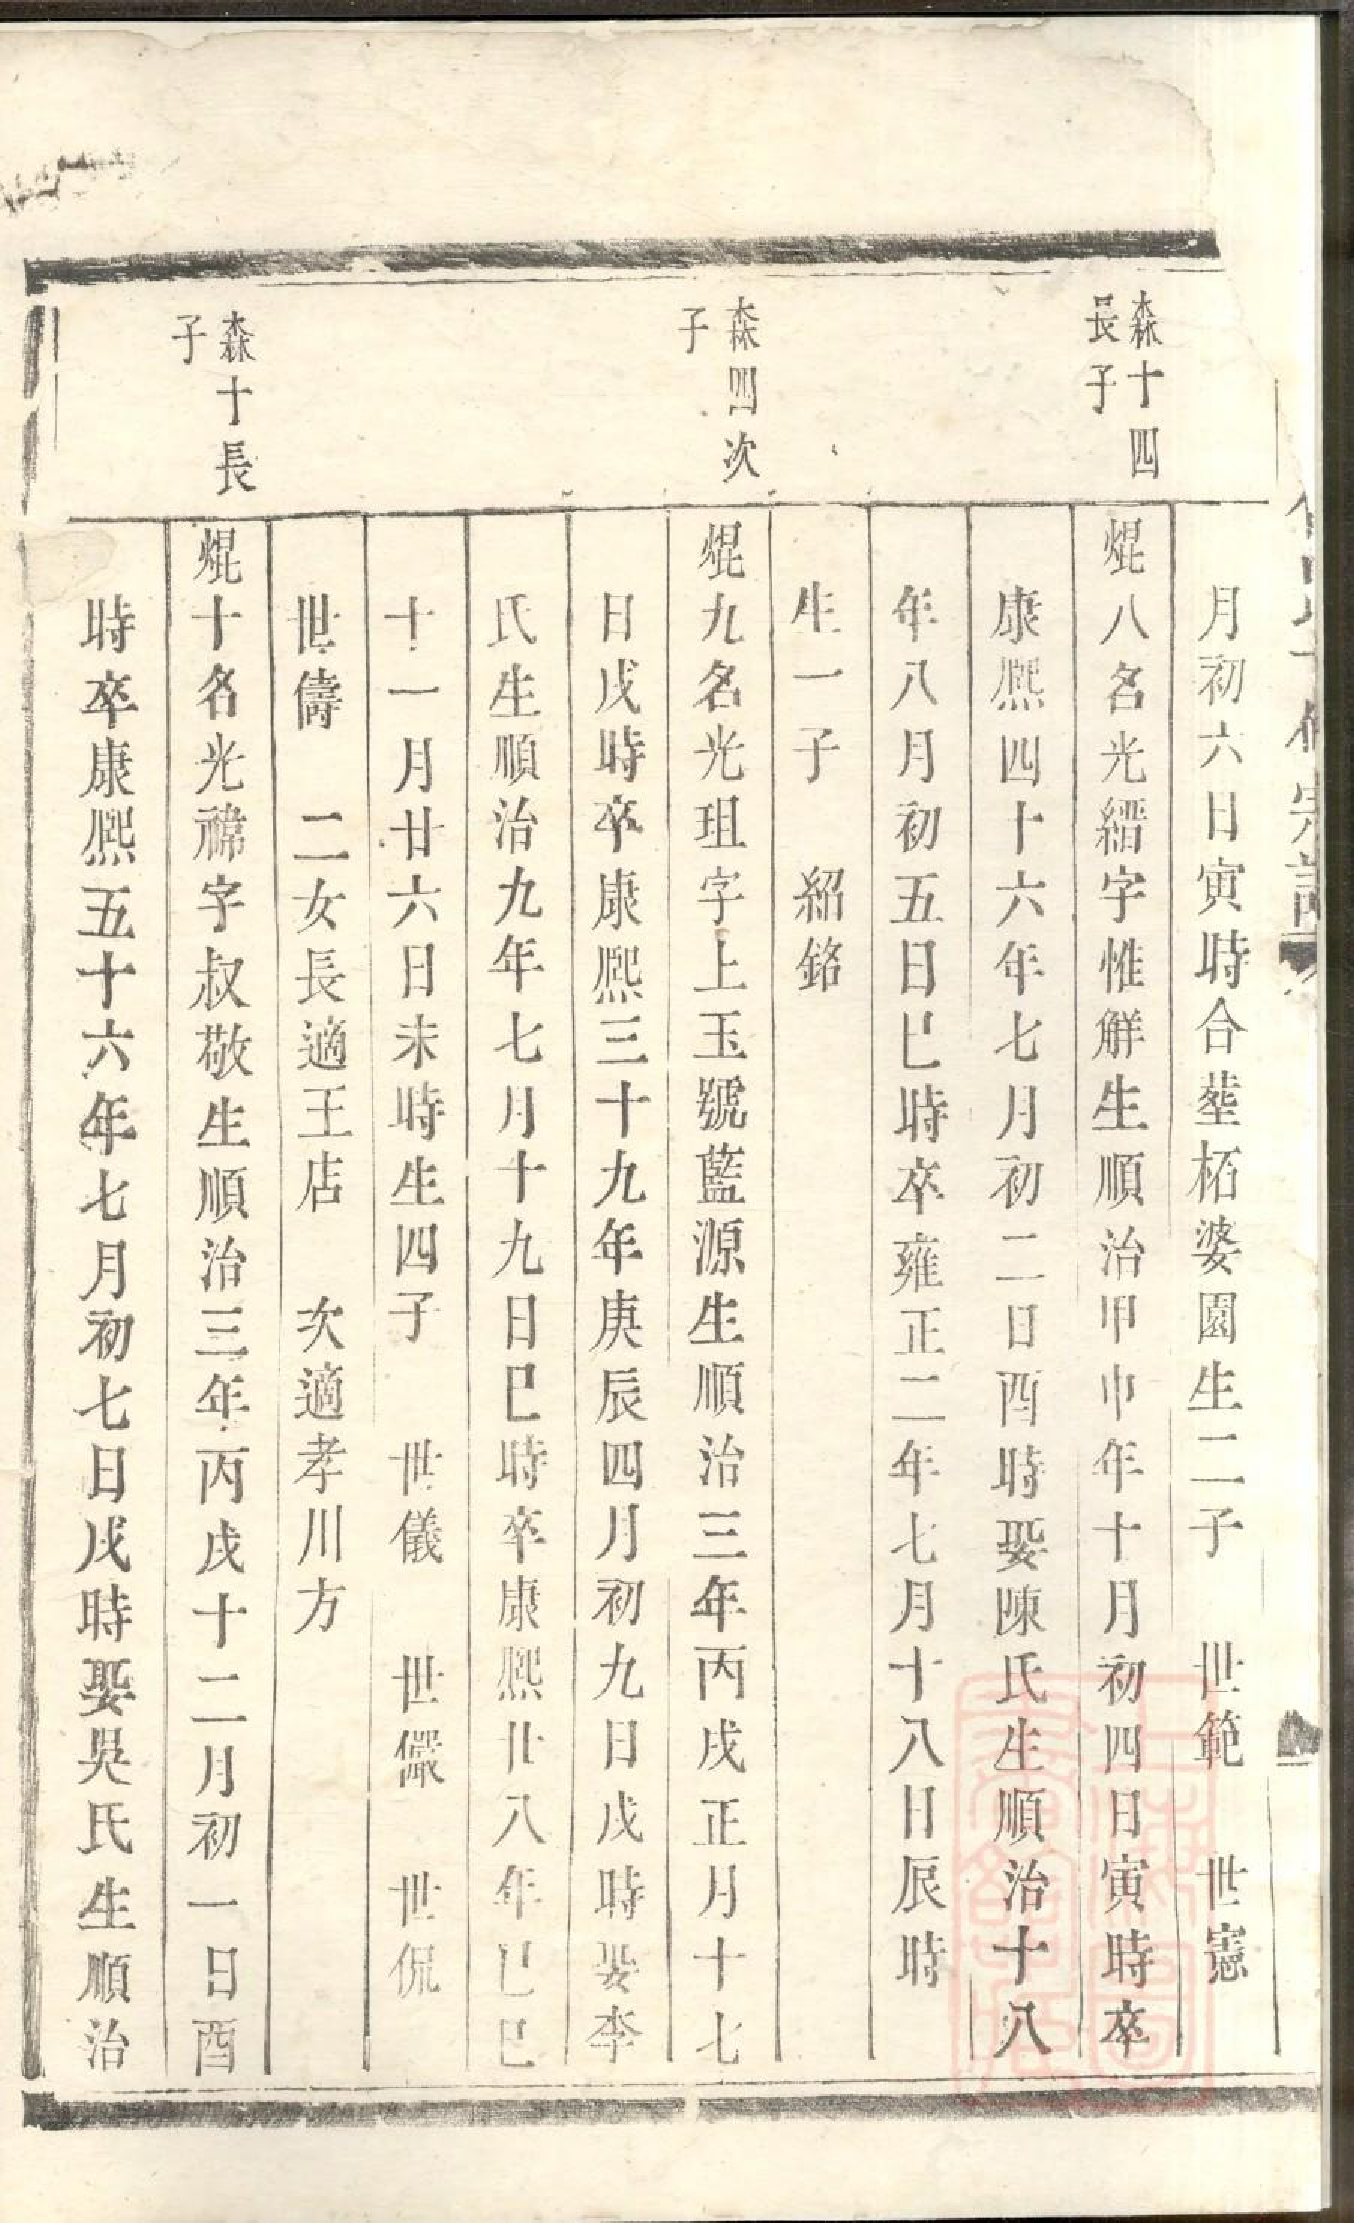 月初六日寅時合塟柘婆園生二子　世範　世憲
森十四
長子
焜八名光縉字惟解生順治甲申年十月初四日寅時卒
康熙四十六年七月初二日酉時娶陳氏生順治十八
年八月初五日巳時卒雍正二年七月十八日辰時
生一子　紹銘
森四次
子
焜九名光珇字上玉號藍源生順治三年丙戌正月十七
日戌時卒康熙三十九年庚辰四月初九日戌時娶李
氏生順治九年七月十九日巳時卒康熙廿八年己巳
十一月廿六日未時生四子　世儀　世儼　世侃
世儔　二女長適王店　次適孝川方
森十長
子
焜十名光禕字叔敬生順治三年丙戌十二月初一日酉
時卒康熙五十六年七月初七日戌時娶吳氏生順治